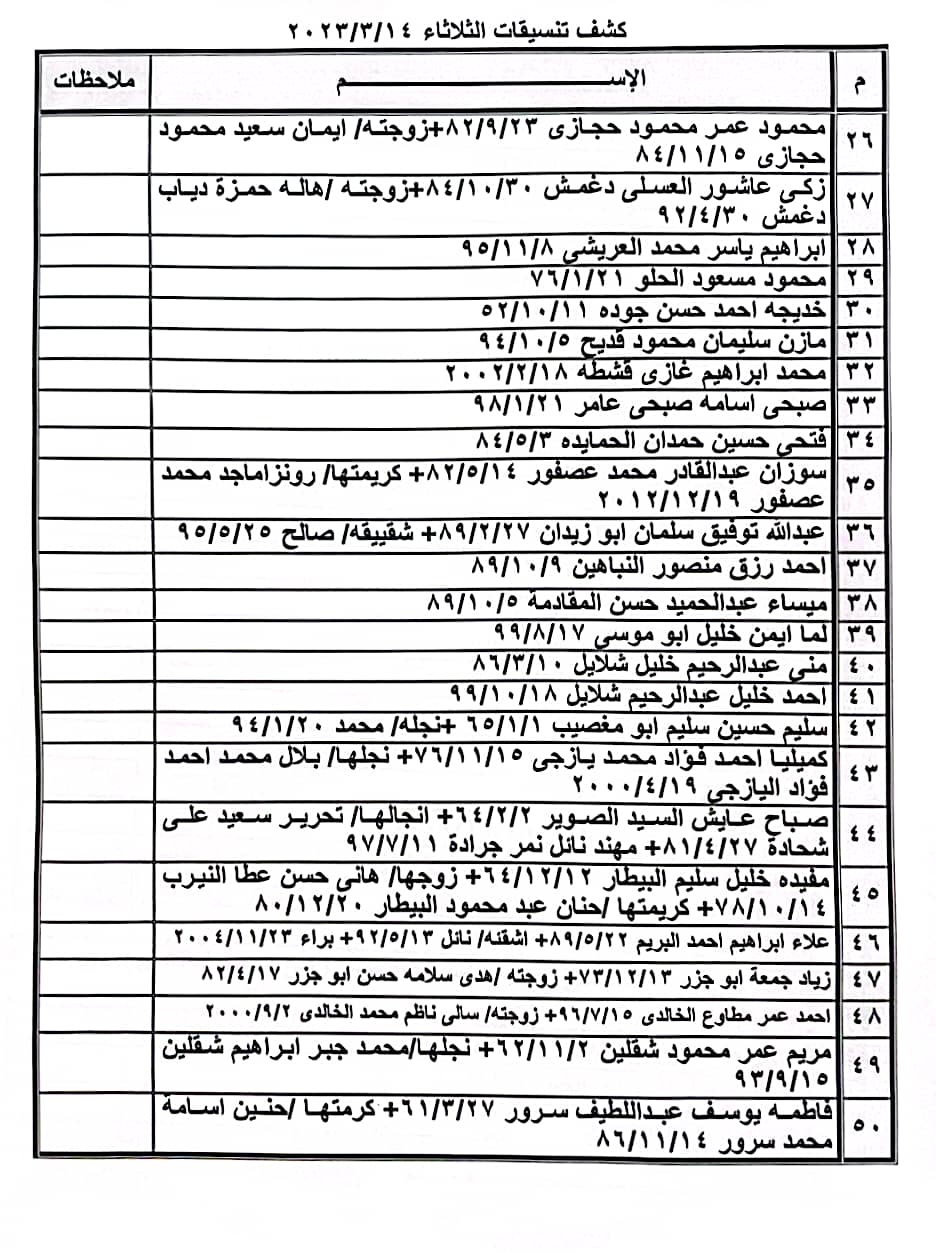 كشف تنسيقات الثلاثاء ٢٠٢٣/٣/١٤
م الإســــــــــم ملاحظات
٢٦ محمود عمر محمود حجازى ٨٢/٩/٢٣+زوجته/ ايمان سعيد محمود
حجازى ٨٤/١١/١٥
٢٧ زكى عاشور العسلى دغمش ٨٤/١٠/٣٠+زوجته /هاله حمزة دياب
دغمش ٩٢/٤/٣٠
٢٨ ابراهيم ياسر محمد العريشي ٩٥/١١/٨
٢٩ محمود مسعود الحلو ٧٦/١/٢١
٣٠ خديجه احمد حسن جوده ٥٢/١٠/١١
٣١ مازن سليمان محمود قديح ٩٤/١٠/٥
٣٢ محمد ابراهيم غازى قشطه ٢٠٠٢/٢/١٨
٣٣ صبحى اسامه صبحى عامر ٩٨/١/٢١
٣٤ فتحي حسين حمدان الحمايده ٨٤/٥/٣
٣٥ سوزان عبدالقادر محمد عصفور ٨٢/٥/١٤+ كريمتها/ رونزاماجد محمد
عصفور ٢٠١٢/١٢/١٩
٣٦ عبدالله توفيق سلمان ابو زيدان ٨٩/٢/٢٧+ شقييقه/ صالح ٩٥/٥/٢٥
٣٧ احمد رزق منصور النباهين ٨٩/١٠/٩
٣٨ ميساء عبدالحميد حسن المقادمة ٨٩/١٠/٥
٣٩ لما ايمن خليل ابو موسي ٩٩/٨/١٧
٤٠ مني عبدالرحيم خليل شلايل ٨٦/٣/١٠
٤١ احمد خليل عبدالرحيم شلايل ٩٩/١٠/١٨
٤٢ سليم حسين سليم ابو مغصيب ٦٥/١/١ +نجله/ محمد ٩٤/١/٢٠
٤٣ كميليا احمد فؤاد محمد يازجى ٧٦/١١/١٥+ نجلها/ بلال محمد احمد
فؤاد اليازجي ٢٠٠٠/٤/١٩
٤٤ صباح عايش السيد الصوير ٦٤/٢/٢+ انجالها/ تحرير سعيد على
شحادة ٨١/٤/٢٧+ مهند نائل نمر جرادة ٩٧/٧/١١
٤٥ مفيده خليل سليم البيطار ٦٤/١٢/١٢+ زوجها/ هانى حسن عطا النيرب
٧٨/١٠/١٤+ كريمتها /حنان عبد محمود البيطار ٨٠/١٢/٢٠
٤٦ علاء ابراهيم احمد البريم ٨٩/٥/٢٢+ اشقنه/ نائل ٩٢/٥/١٣+ براء ٢٠٠٤/١١/٢٣
٤٧ زياد جمعة ابو جزر ٧٣/١٢/١٣+ زوجته /هدى سلامه حسن ابو جزر ٨٢/٤/١٧
٤٨ احمد عمر مطاوع الخالدى ٩٦/٧/١٥+ زوجته/ سالى ناظم محمد الخالدى ٢٠٠٠/٩/٢
٤٩ مريم عمر محمود شقلين ٦٢/١١/٢+ نجلها/محمد جبر ابراهيم شقلين
٩٣/٩/١٥
٥٠ فاطمه يوسف عبداللطيف سرور ٦١/٣/٢٧+ كرمتها /حنين اسامة
محمد سرور ٨٦/١١/١٤